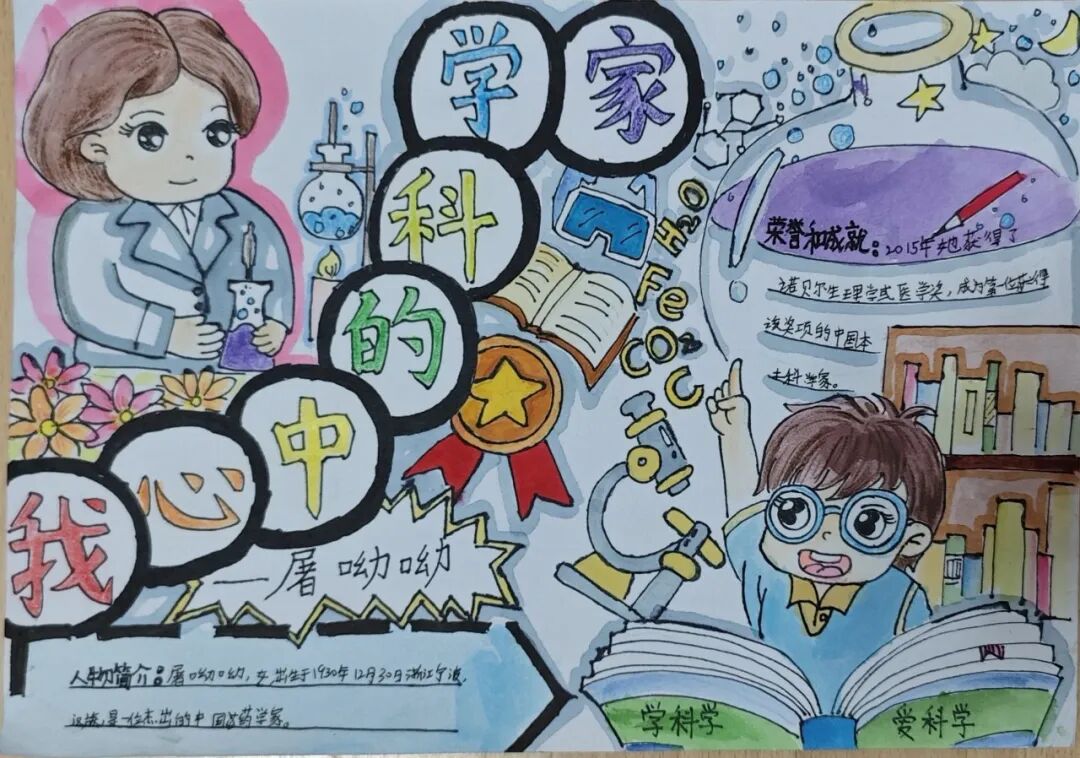 我心中的科学家
——屠呦呦
人物简介：屠呦呦，女，出生于1930年12月30日浙江宁波，
汉族，是一位杰出的中国医药学家。
H2O
Fe
CO2
C
荣誉和成就：2015年她获得了
诺贝尔生理学或医学奖，成为第一位获得
该奖项的中国本
土科学家。
学科学
爱科学